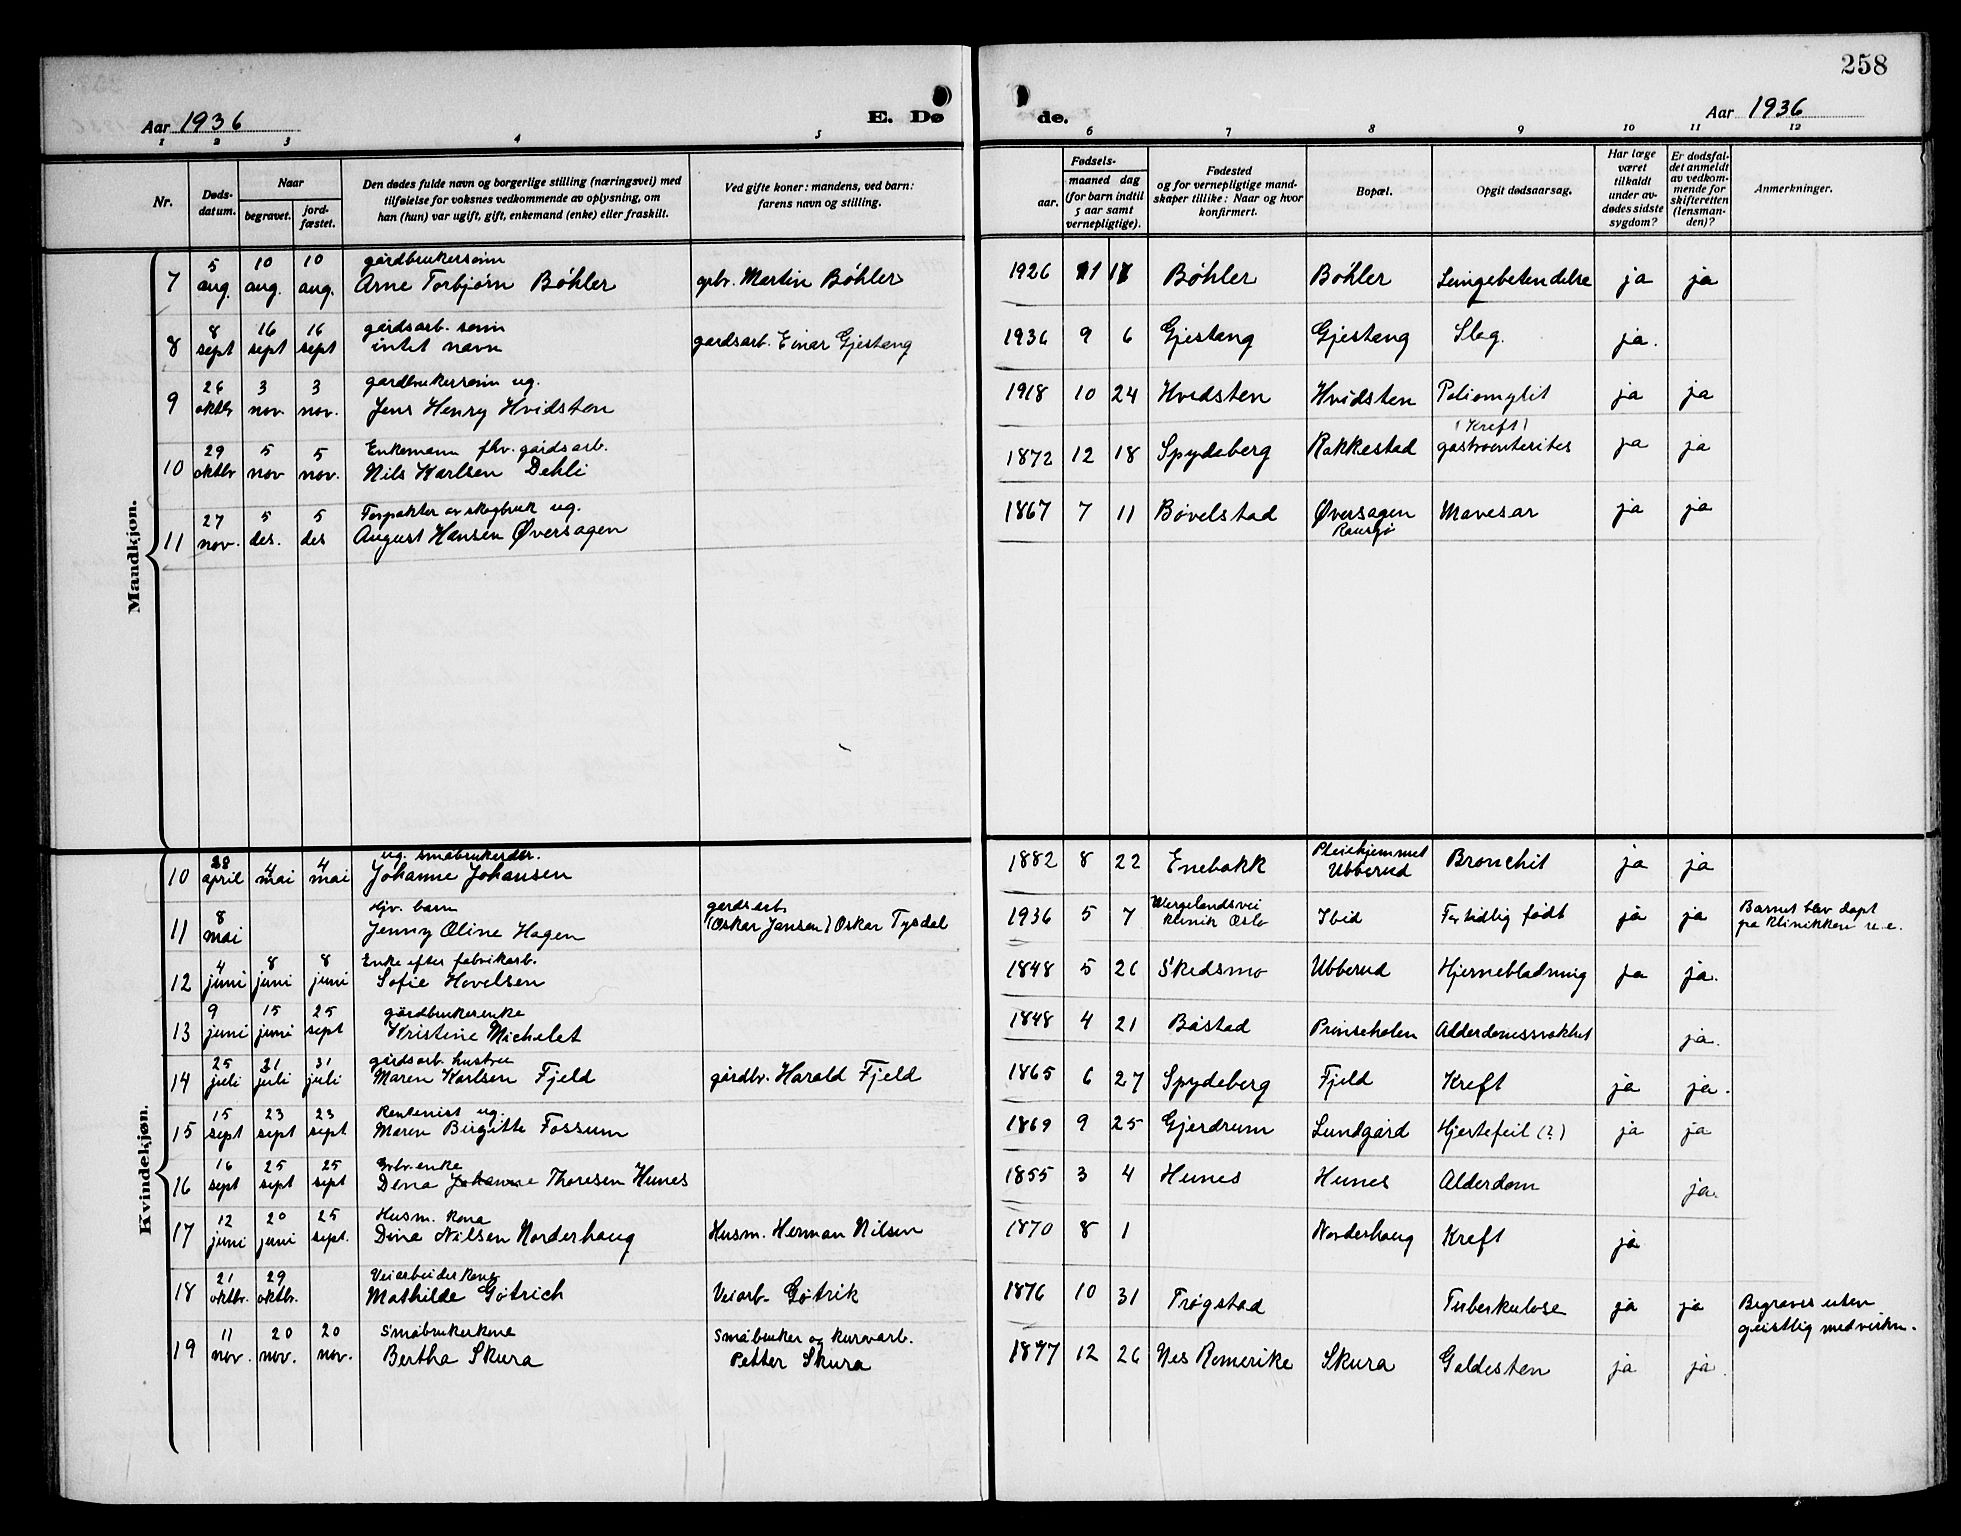 258
Aar 1936
E. Dø
de.
Aar 1936
1 2 3 4 5
6 7 8 9 10 11 12
Nr.
Døds-
datum.
Naar
begravet.
jord-
fæstet.
Den dødes fulde navn og borgerlige stilling (næringsvei) med
tilføielse for voksnes vedkommende av oplysning, om
han (hun) var ugift, gift, enkemand (enke) eller fraskilt.
Ved gifte koner: mandens, ved barn:
farens navn og stilling.
Fødsels-
aar.
maaned dag
(for barn indtil
5 aar samt
vernepligtige).
Fødested
og for vernepligtige mand-
skaper tillike: Naar og hvor
konfirmert.
Bopæl.
Opgit dødsaarsag.
Har læge
været
tilkaldt
under av-
dødes sidste
sygdom?
Er dødsfal-
det anmeldt
av vedkom-
mende for
skifteretten
(lensman-
den)?
Anmerkninger.
Mandkjøn.
5 10 10 gårdbrukersønn
7 aug. aug. aug. Arne Torbjørn Bøhler grbr. Martin Bøhler 1926 11 Bøhler Bøhler Lungebetendelse ja ja
8 16 16 gårdsarb. sønn
8 sept sept sept intet navn gardsarb. Einar Gjestang 1936 9 6 Gjestang Gjestang Slag. ja.
26 3 3 gardbrukersønn ug.
9 oktbr nov nov. Jens Henry Hvidsten 1918 10 24 Hvidsten Hvidsten Poliomylit ja ja
29 5 5 Enkemann fhv. gårdsarb. (Kreft)
10 oktbr nov nov. Nils Karlsen Dehli 1872 12 18 Spydeberg Rakkestad gastroenterites ja ja
27 5 5 Forpakter av skogbruk ug.
11 nov. des. des August Hansen Øversagen 1867 7 11 Bøvelstad Øversagen Mavesar ja ja
Rausjø
Kvindekjøn.
28 4 4 ug. småbrukerdtr. Pleiehjemmet
10 april mai mai Johanne Johansen 1882 8 22 Enebakk Ubberud Bronchit ja ja
8 Hjv. barn gardsarb. Wergelandsvei Barnet blev døpt
11 mai Jenny Oline Hagen (Oskar Jansen) Oskar Tysdal 1936 5 7 klinik Oslo Ibid For tidlig født ja ja på klinikken
4 8 8 Enke efter fabrikarb.
12 juni juni juni Sofie Hovelsen 1848 5 26 Skedsmo Ubberud Hjernebladning ja ja.
9 15 25 gårdbrukerenke
13 juni juni sept Kristine Michelet 1848 4 21 Båstad Prinseholen Alderdomssvakhet ja.
25 31 31 gårdsarb. hustru
14 juli juli juli Maren Karlsen Fjeld gårdbr. Harald Fjeld 1865 6 27 Spydeberg Fjeld Kreft ja ja.
15 23 23 Rentenist ug.
15 sept sept sept Maren Birgitte Fossum 1869 9 25 Gjerdrum Lundgård Hjertefeil (?) ja ja
16 25 25 Grbr. enke
16 sept sept sept Dina Johanne Thoresen Hunes 1855 3 4 Hunes Hunes Alderdom ja.
12 20 25 Husm. kona
17 juni juni sept. Dina Nilsen Norderhaug Husm. Herman Nilsen 1870 8 1 Norderhaug Kreft ja
21 29 Veiarbeider kone Begraves uten
18 oktbr. oktbr. Mathilde Gøtrich Veiarb. Gøtrik 1876 10 31 Trøgstad Tuberkulose ja ja geistlig medvirkn.
11 20 20 Småbrukerkone Småbruker og kurvarb.
19 nov. nov. nov. Bertha Skura Petter Skura 1877 12 26 Nes Romerike Skura Galdesten ja ja.